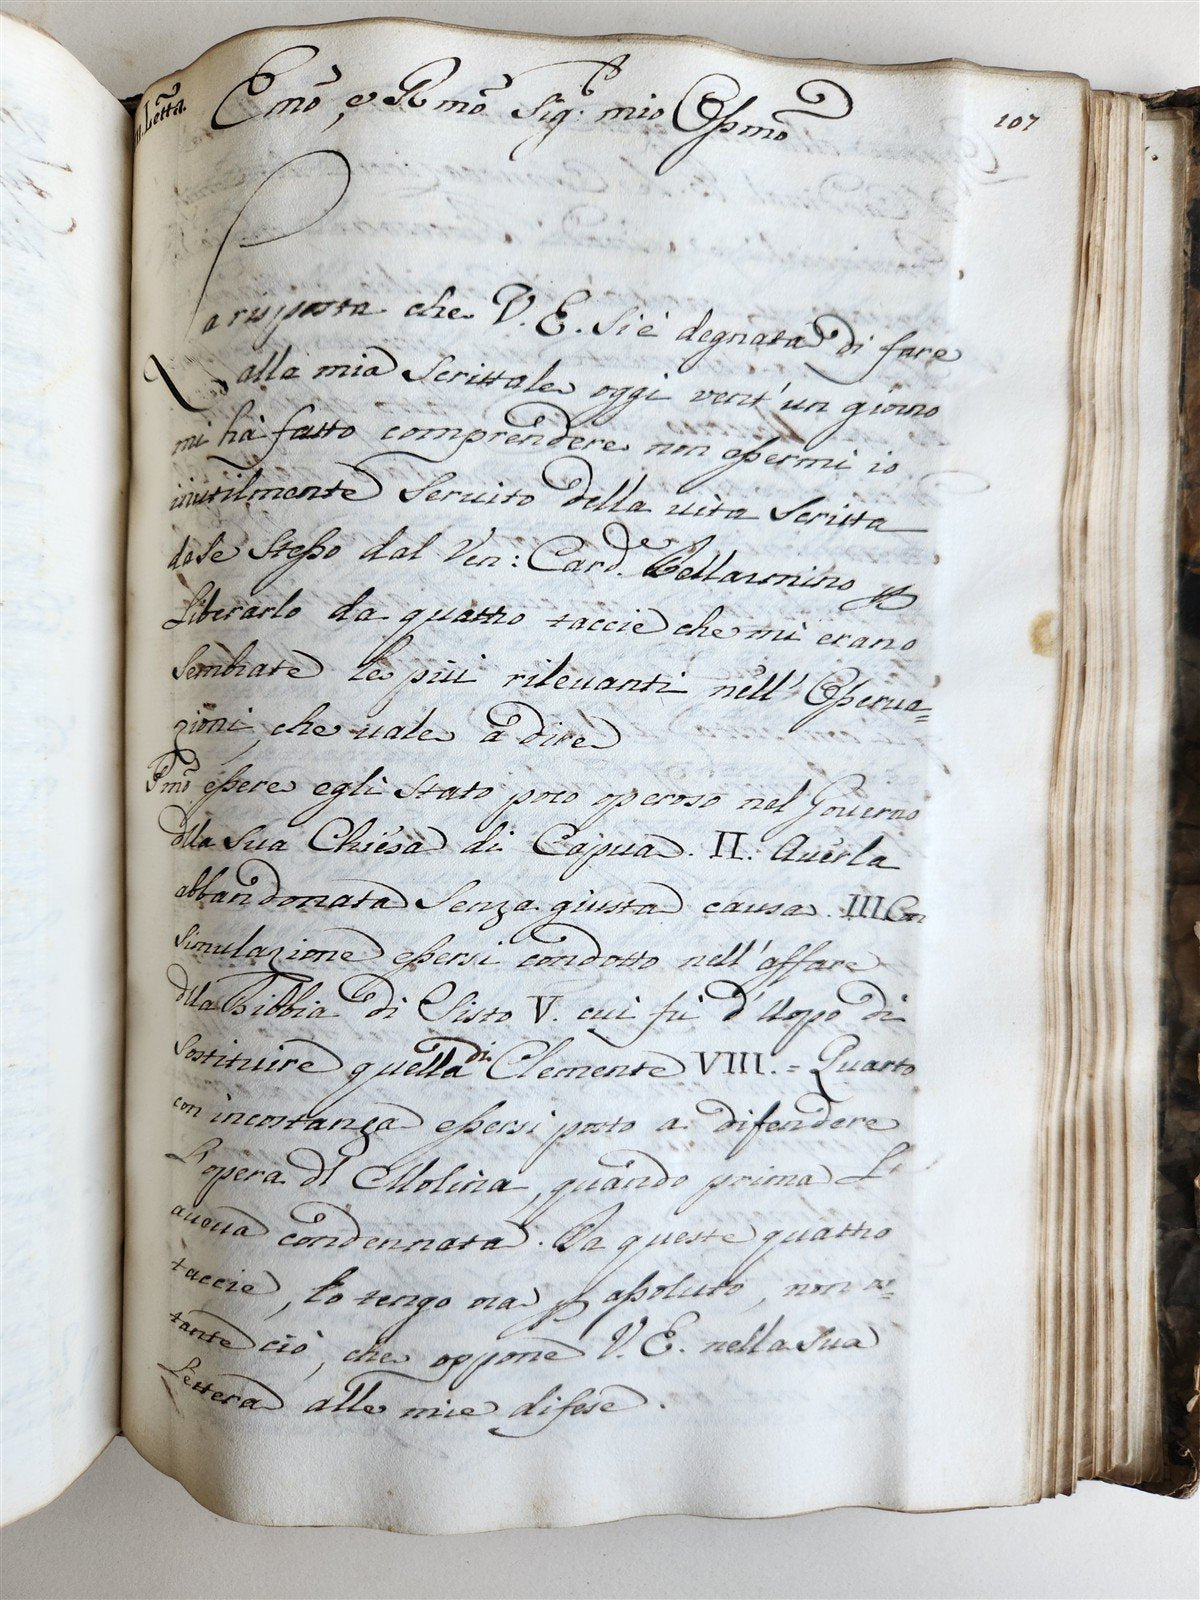 Letta.
Emo, e Rmo Sig.r mio Ossmo
107
La risposta che V. E. si è degnata di fare
alla mia scrittale oggi vent' un giorno
mi hà fatto comprendere non essermi io
inutilmente seruito della uita scritta
da se stesso dal Ven: Card.e Bellarmino p
liberarlo da quattro taccie che mi erano
sembrate le più rileuanti nell' Osserua=
zioni, che uale a dire
Pmo essere egli stato poco operoso nel Gouerno
dlla sua Chiesa di Capua. II. Auerla
abbandonata senza giusta causa. III. Con
simulazione essersi condotto nell' affare
dlla Bibbia di Sisto V. cui fù d' uopo di
sostituire quella di Clemente VIII. = Quarto
con incostanza essersi posto a difendere
l' opera dl Molina, quando prima l'
aueua condennata. Da queste quattro
taccie, lo tengo ora p assoluto, non os=
tante ciò, che oppone V. E. nella sua
lettera alle mie difese.